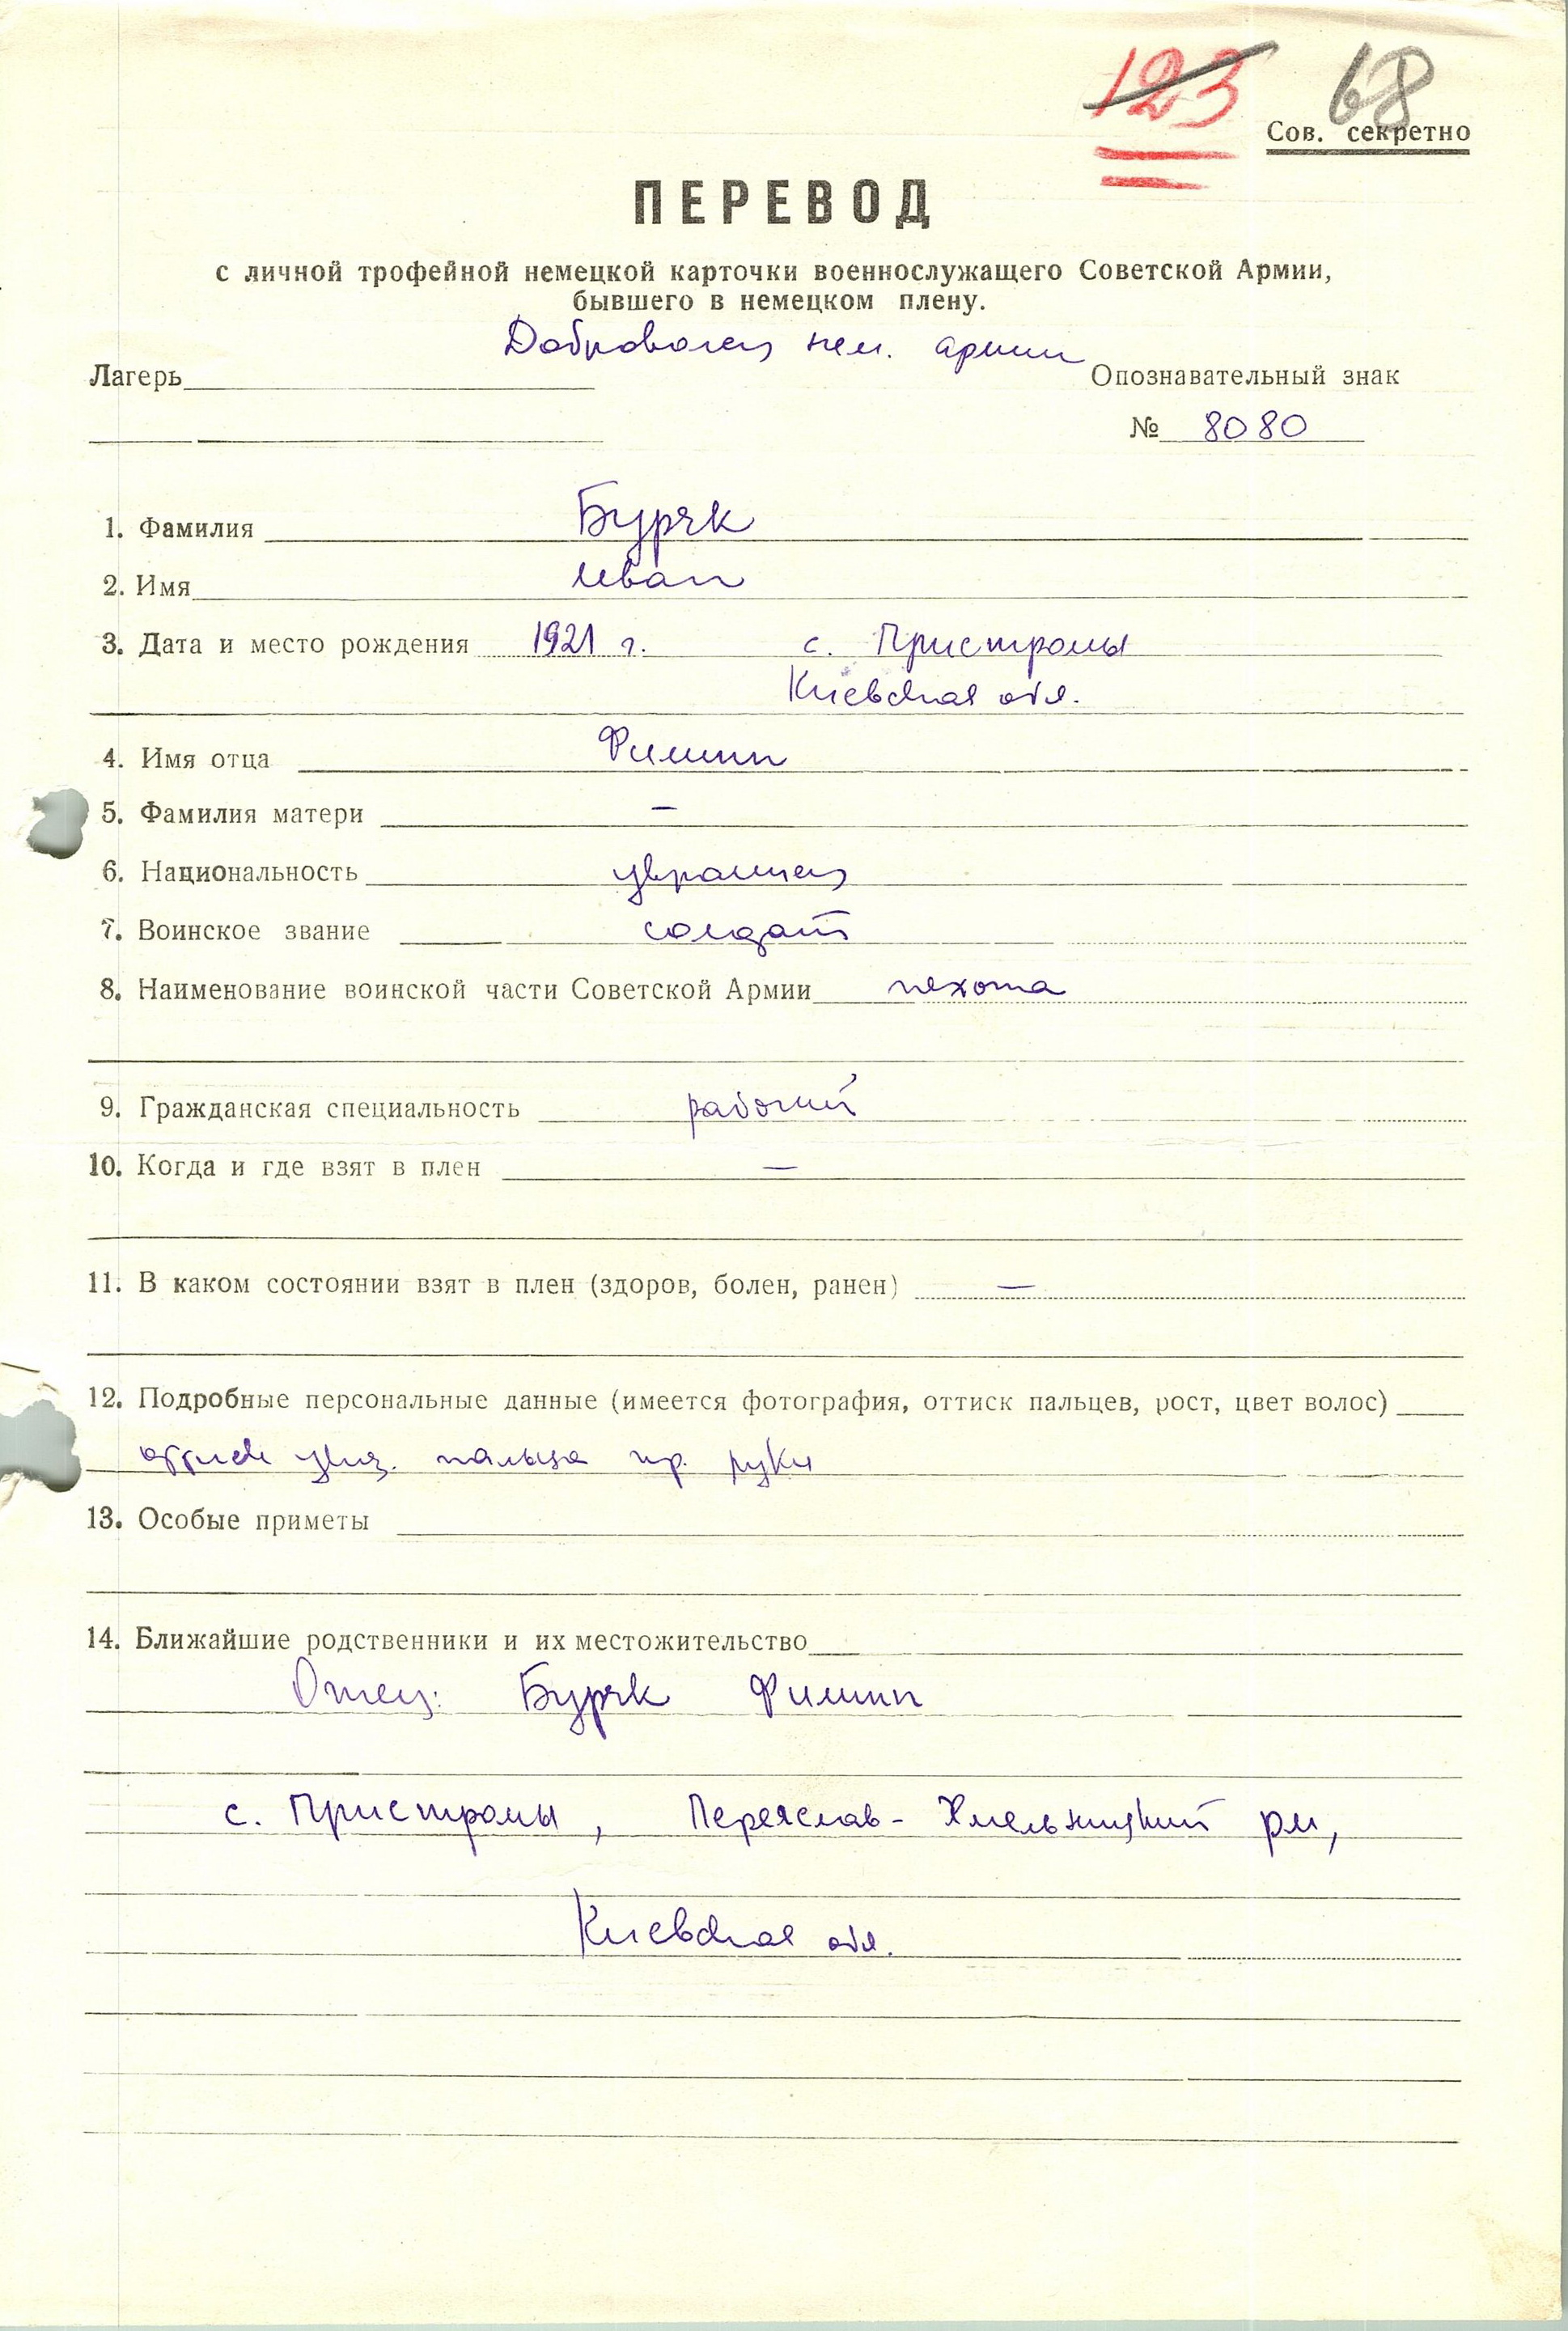 123 68
Сов. секретно
ПЕРЕВОД
с личной трофейной немецкой карточки военнослужащего Советской Армии,
бывшего в немецком плену.
Доброволец нем. армии
Лагерь
Опознавательный знак
№ 8080
1. Фамилия Буряк
2. Имя Иван
3. Дата и место рождения 1921 г. с. Пристромы
Киевская обл.
4. Имя отца Филипп
5. Фамилия матери —
6. Национальность украинец
7. Воинское звание солдат
8. Наименование воинской части Советской Армии пехота
9. Гражданская специальность рабочий
10. Когда и где взят в плен —
11. В каком состоянии взят в плен (здоров, болен, ранен) —
12. Подробные персональные данные (имеется фотография, оттиск пальцев, рост, цвет волос)
оттиск указ. пальца пр. руки
13. Особые приметы
14. Ближайшие родственники и их местожительство
Отец: Буряк Филипп
с. Пристромы, Переяслав-Хмельницкий рн,
Киевская обл.